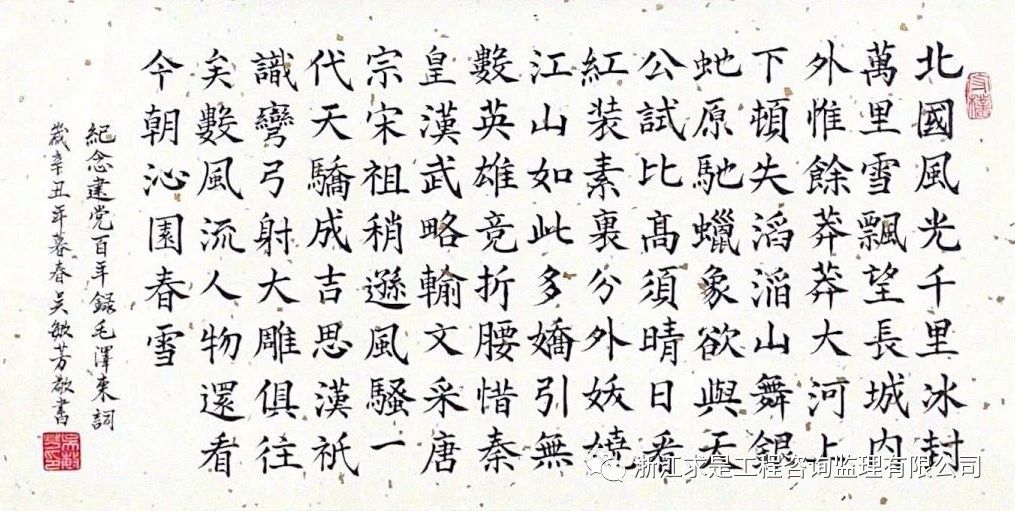 北國風光千里冰封
萬里雪飄望長城内
外惟餘莽莽大河上
下頓失滔滔山舞銀
虵原馳蠟象欲與天
公試比髙須晴日看
紅装素裹分外妖嬈
江山如此多嬌引無
數英雄竞折腰惜秦
皇漢武略輸文采唐
宗宋祖稍遜風騷一
代天驕成吉思漢衹
識彎弓射大雕俱往
矣數風流人物還看
今朝沁園春雪
紀念建党百年録毛澤東詞
歲辛丑年暮春吴敏芳敬書
浙江求是工程咨询监理有限公司